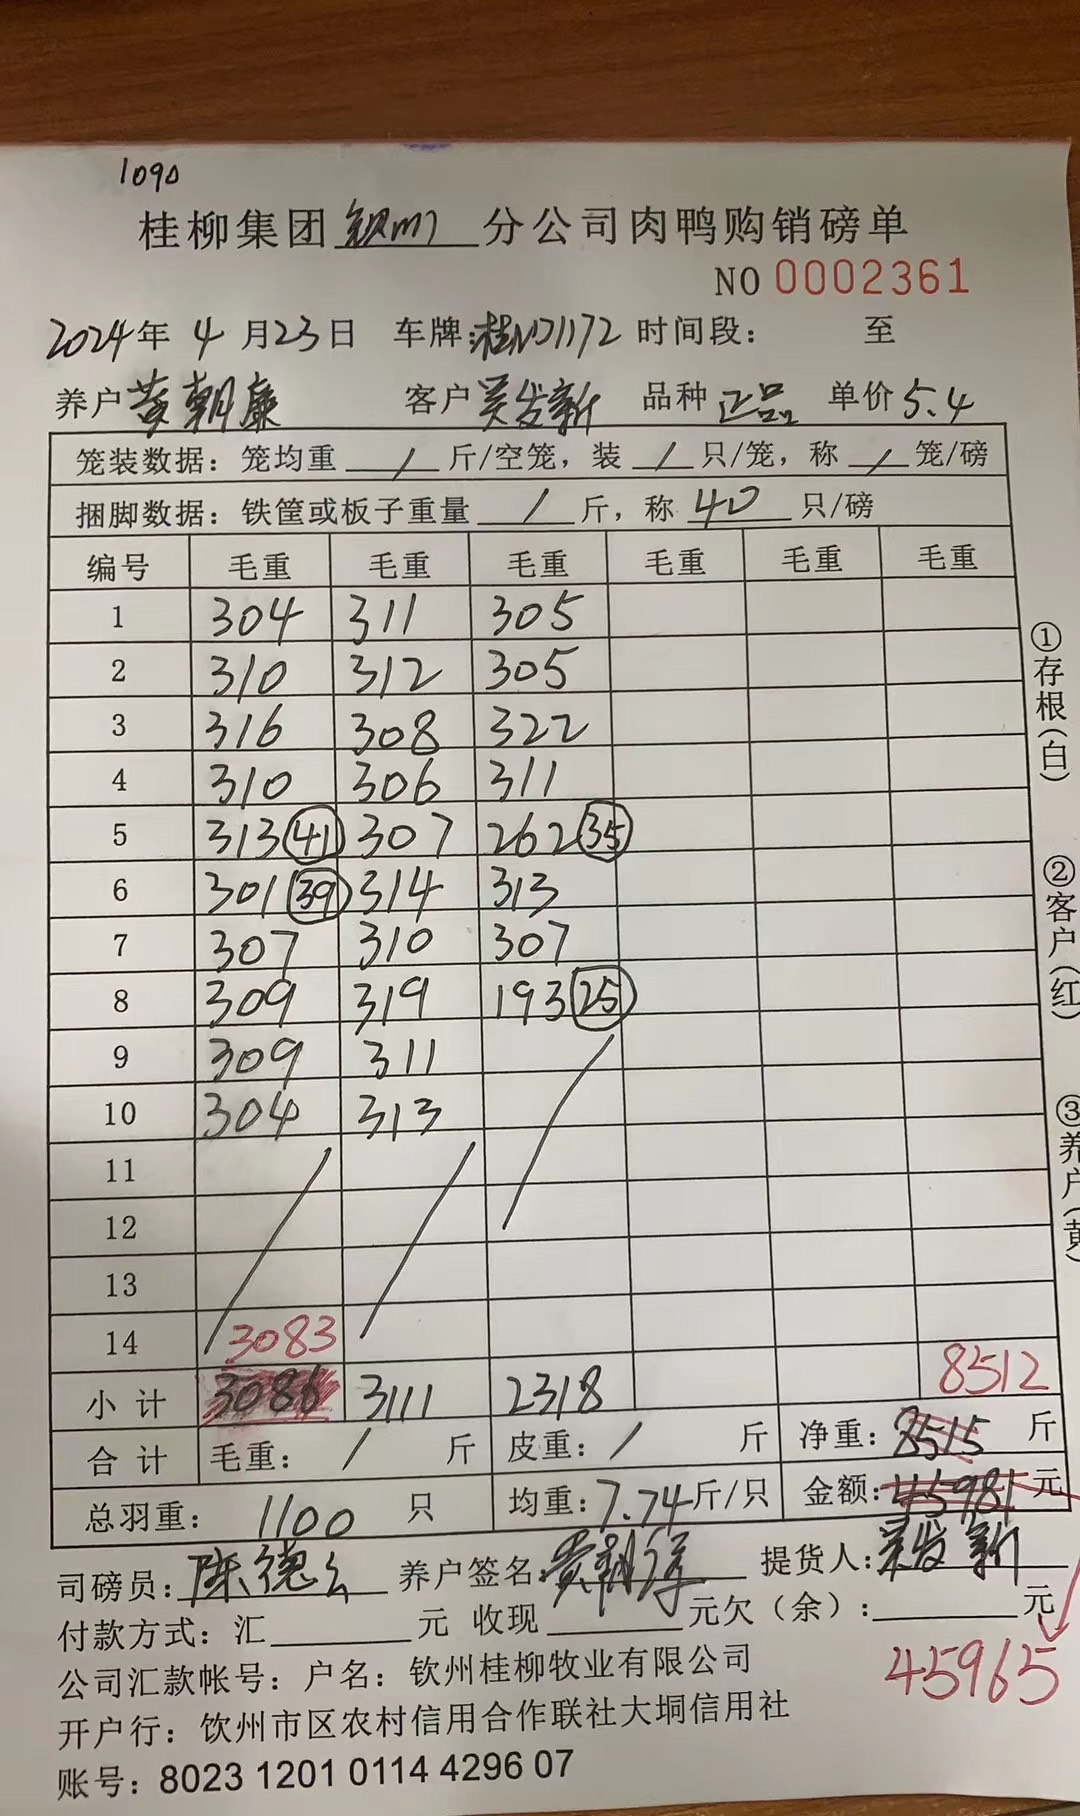 1090
桂柳集团 钦州 分公司肉鸭购销磅单
NO 0002361
2024年 4月23日 车牌:桂N71172 时间段: 至
养户 黄朝廉 客户 吴发新 品种 正品 单价 5.4
笼装数据:笼均重 / 斤/空笼,装 / 只/笼,称 / 笼/磅
捆脚数据:铁筐或板子重量 / 斤,称 40 只/磅
编号 毛重 毛重 毛重 毛重 毛重 毛重
1 304 311 305
2 310 312 305
3 316 308 322
4 310 306 311
5 313 41 307 262 35
6 301 39 314 313
7 307 310 307
8 309 319 193 25
9 309 311
10 304 313
11
12
13
14 3083
小计 3086 3111 2318 8512
合计 毛重: / 斤 皮重: / 斤 净重: 8515 斤
总羽重: 1100 只 均重: 7.74斤/只 金额: 45981元
司磅员: 陈德 养户签名: 黄朝 提货人: 吴发新
付款方式:汇 元 收现 元欠(余): 元
45965
公司汇款帐号:户名:钦州桂柳牧业有限公司
开户行:钦州市区农村信用合作联社大垌信用社
账号:8023 1201 0114 4296 07
①存根(白)
②客户(红)
③养户(黄